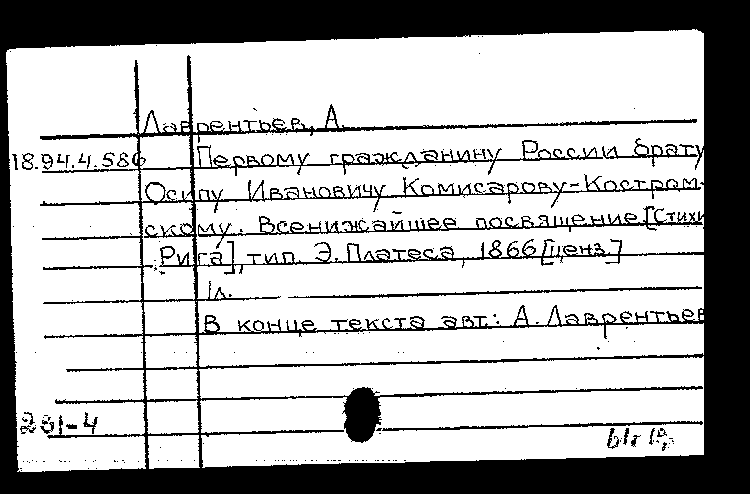 Лаврентьев, А.
18.94.4.586 Первому гражданину России брату
Осипу Ивановичу Комисарову-Костром-
скому. Всенижайшее посвящение.[Стихи
Рига], тип. Э. Платеса, 1866 [ценз.]
1л.
В конце текста авт.: А. Лаврентьев
281-4